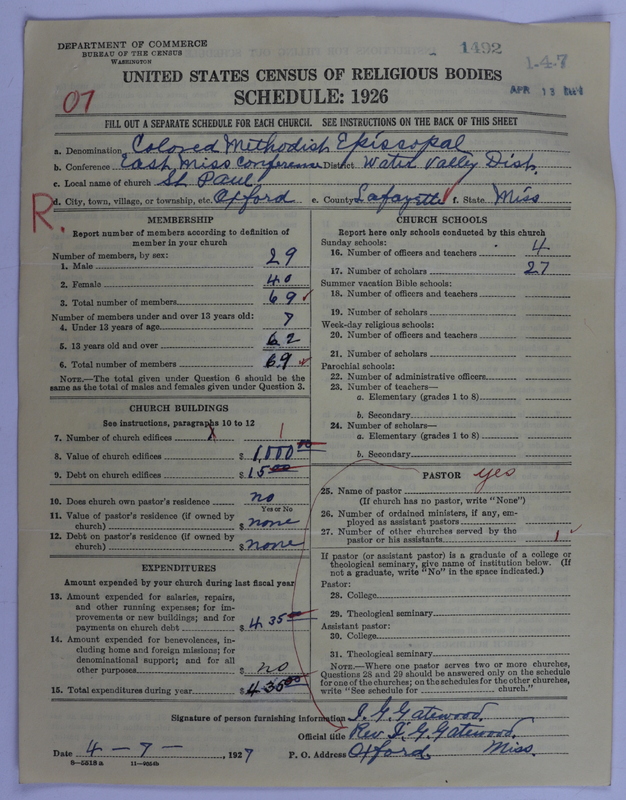 DEPARTMENT OF COMMERCE
BUREAU OF THE CENSUS
WASHINGTON
1492
1-4-7
APR 13
07
UNITED STATES CENSUS OF RELIGIOUS BODIES
SCHEDULE: 1926
FILL OUT A SEPARATE SCHEDULE FOR EACH CHURCH. SEE INSTRUCTIONS ON THE BACK OF THIS SHEET
a. Denomination Colored Methodish Episcopal
b. Conference East Miss Conference District Water Valley Dist.
c. Local name of church St Paul
d. City, town, village, or township, etc. Oxford e. County Lafayette f. State Miss
R.
MEMBERSHIP
Report number of members according to definition of member in your church
Number of members, by sex:
1. Male 29
2. Female 40
3. Total number of members 69
Number of members under and over 13 years old:
4. Under 13 years of age 7
5. 13 years old and over 62
6. Total number of members 69
NOTE.—The total given under Question 6 should be the same as the total of males and females given under Question 3.
CHURCH BUILDINGS
See instructions, paragraphs 10 to 12
7. Number of church edifices 1
8. Value of church edifices $1,000 00
9. Debt on church edifices $15 00
10. Does church own pastor's residence no
Yes or No
11. Value of pastor's residence (if owned by church) $ none
12. Debt on pastor's residence (if owned by church) $ none
EXPENDITURES
Amount expended by your church during last fiscal year
13. Amount expended for salaries, repairs, and other running expenses; for improvements or new buildings; and for payments on church debt $435 00
14. Amount expended for benevolences, including home and foreign missions; for denominational support; and for all other purposes $ no
15. Total expenditures during year $435 00
CHURCH SCHOOLS
Report here only schools conducted by this church
Sunday schools:
16. Number of officers and teachers 4
17. Number of scholars 27
Summer vacation Bible schools:
18. Number of officers and teachers
19. Number of scholars
Week-day religious schools:
20. Number of officers and teachers
21. Number of scholars
Parochial schools:
22. Number of administrative officers
23. Number of teachers—
a. Elementary (grades 1 to 8)
b. Secondary
24. Number of scholars—
a. Elementary (grades 1 to 8)
b. Secondary
PASTOR yes
25. Name of pastor
(If church has no pastor, write "None")
26. Number of ordained ministers, if any, employed as assistant pastors
27. Number of other churches served by the pastor or his assistants 1
If pastor (or assistant pastor) is a graduate of a college or theological seminary, give name of institution below. (If not a graduate, write "No" in the space indicated.)
Pastor:
28. College
29. Theological seminary
Assistant pastor:
30. College
31. Theological seminary
NOTE.—Where one pastor serves two or more churches, Questions 28 and 29 should be answered only on the schedule for one of the churches; on the schedules for the other churches, write "See schedule for church."
Signature of person furnishing information I. G. Gatewood.
Official title Rev I. G. Gatewood.
Date 4 - 7 - , 1927 P. O. Address Oxford Miss.
8-5518 a 11-9054b